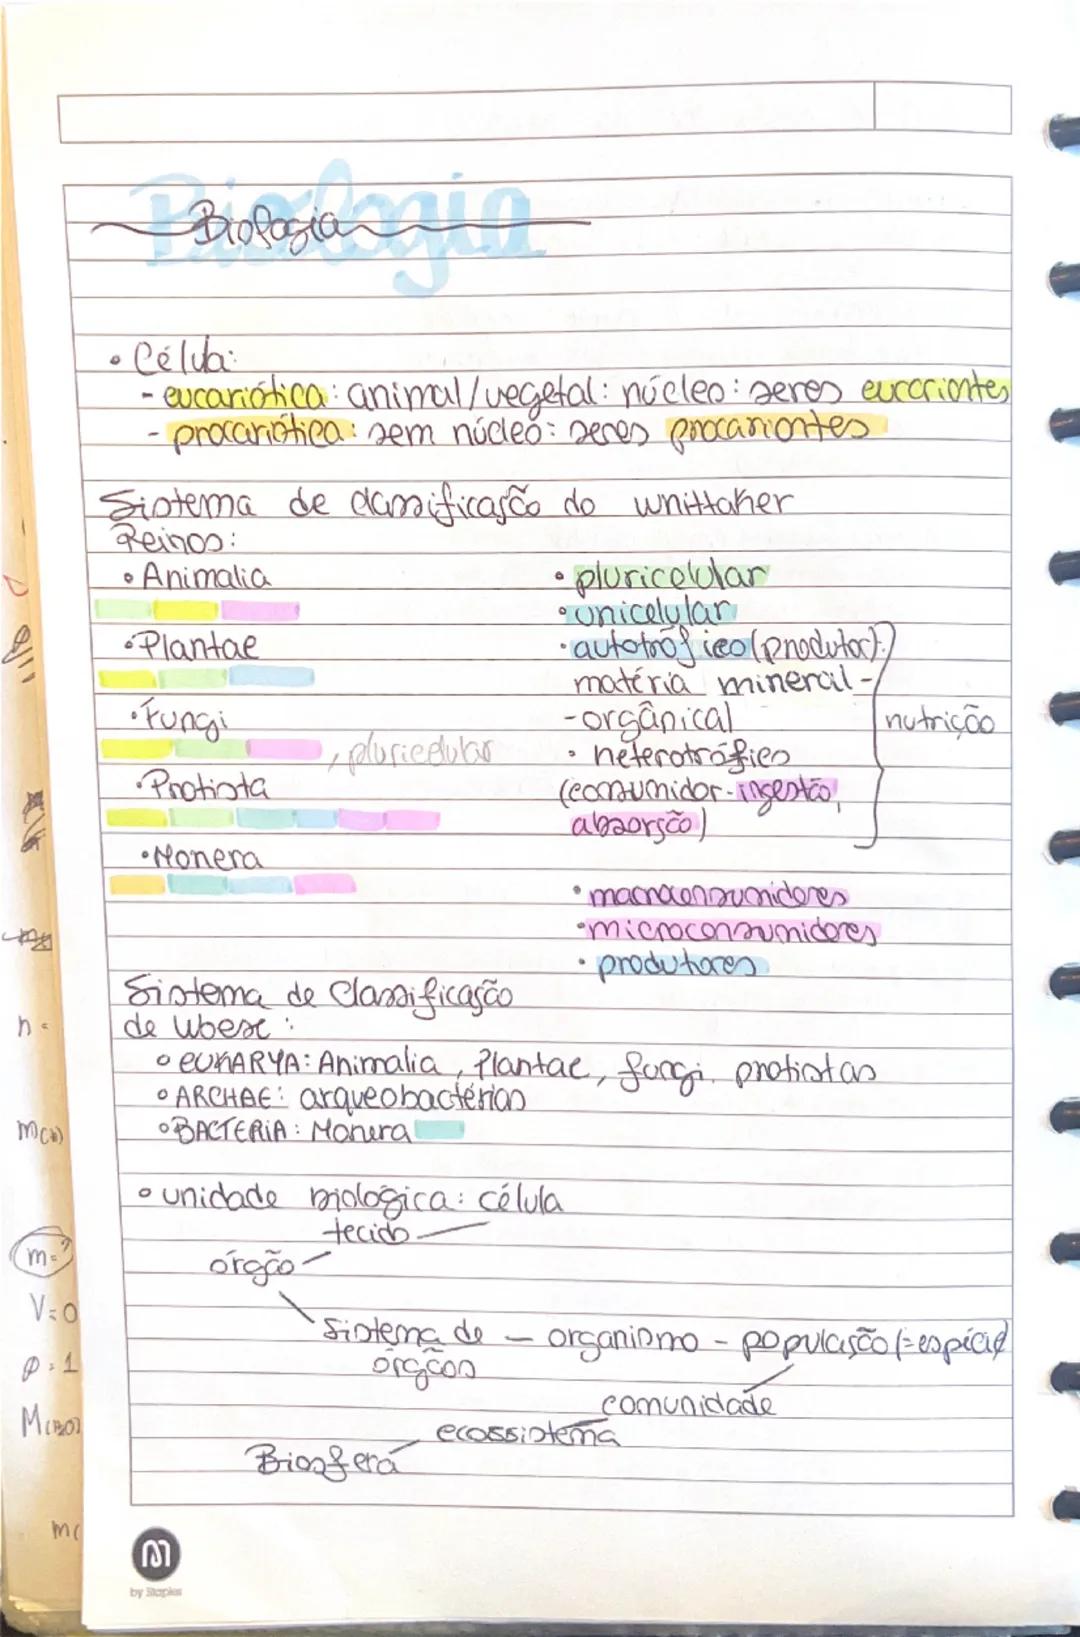 Biologia
Biologia
• Célula:
- eucariótica: animal/vegetal: núcleo: seres eucariontes
- procariótica: sem núcleo: seres procariontes
Sistema de classificação do Whittaker
Reinos:
• Animalia
• Plantae
• Fungi
, pluricelular
• Protista
• Monera
• pluricelular
• unicelular
• autotrófico (produtor):
matéria mineral-
-orgânica)
• heterotrófico
(consumidor-ingestão,
absorção)
nutrição
• macroconsumidores
• microconsumidores
• produtores
Sistema de Classificação
de Woese:
• EUKARYA: Animalia, Plantae, fungi, protistas
• ARCHAE: arqueobactérias
• BACTERIA: Monera
• unidade biológica: célula
tecido
órgão
Sistema de — organismo - população (=espécie)
órgãos
comunidade
ecossistema
Biosfera
n =
m(
m=?
V=0
m(
by Staples